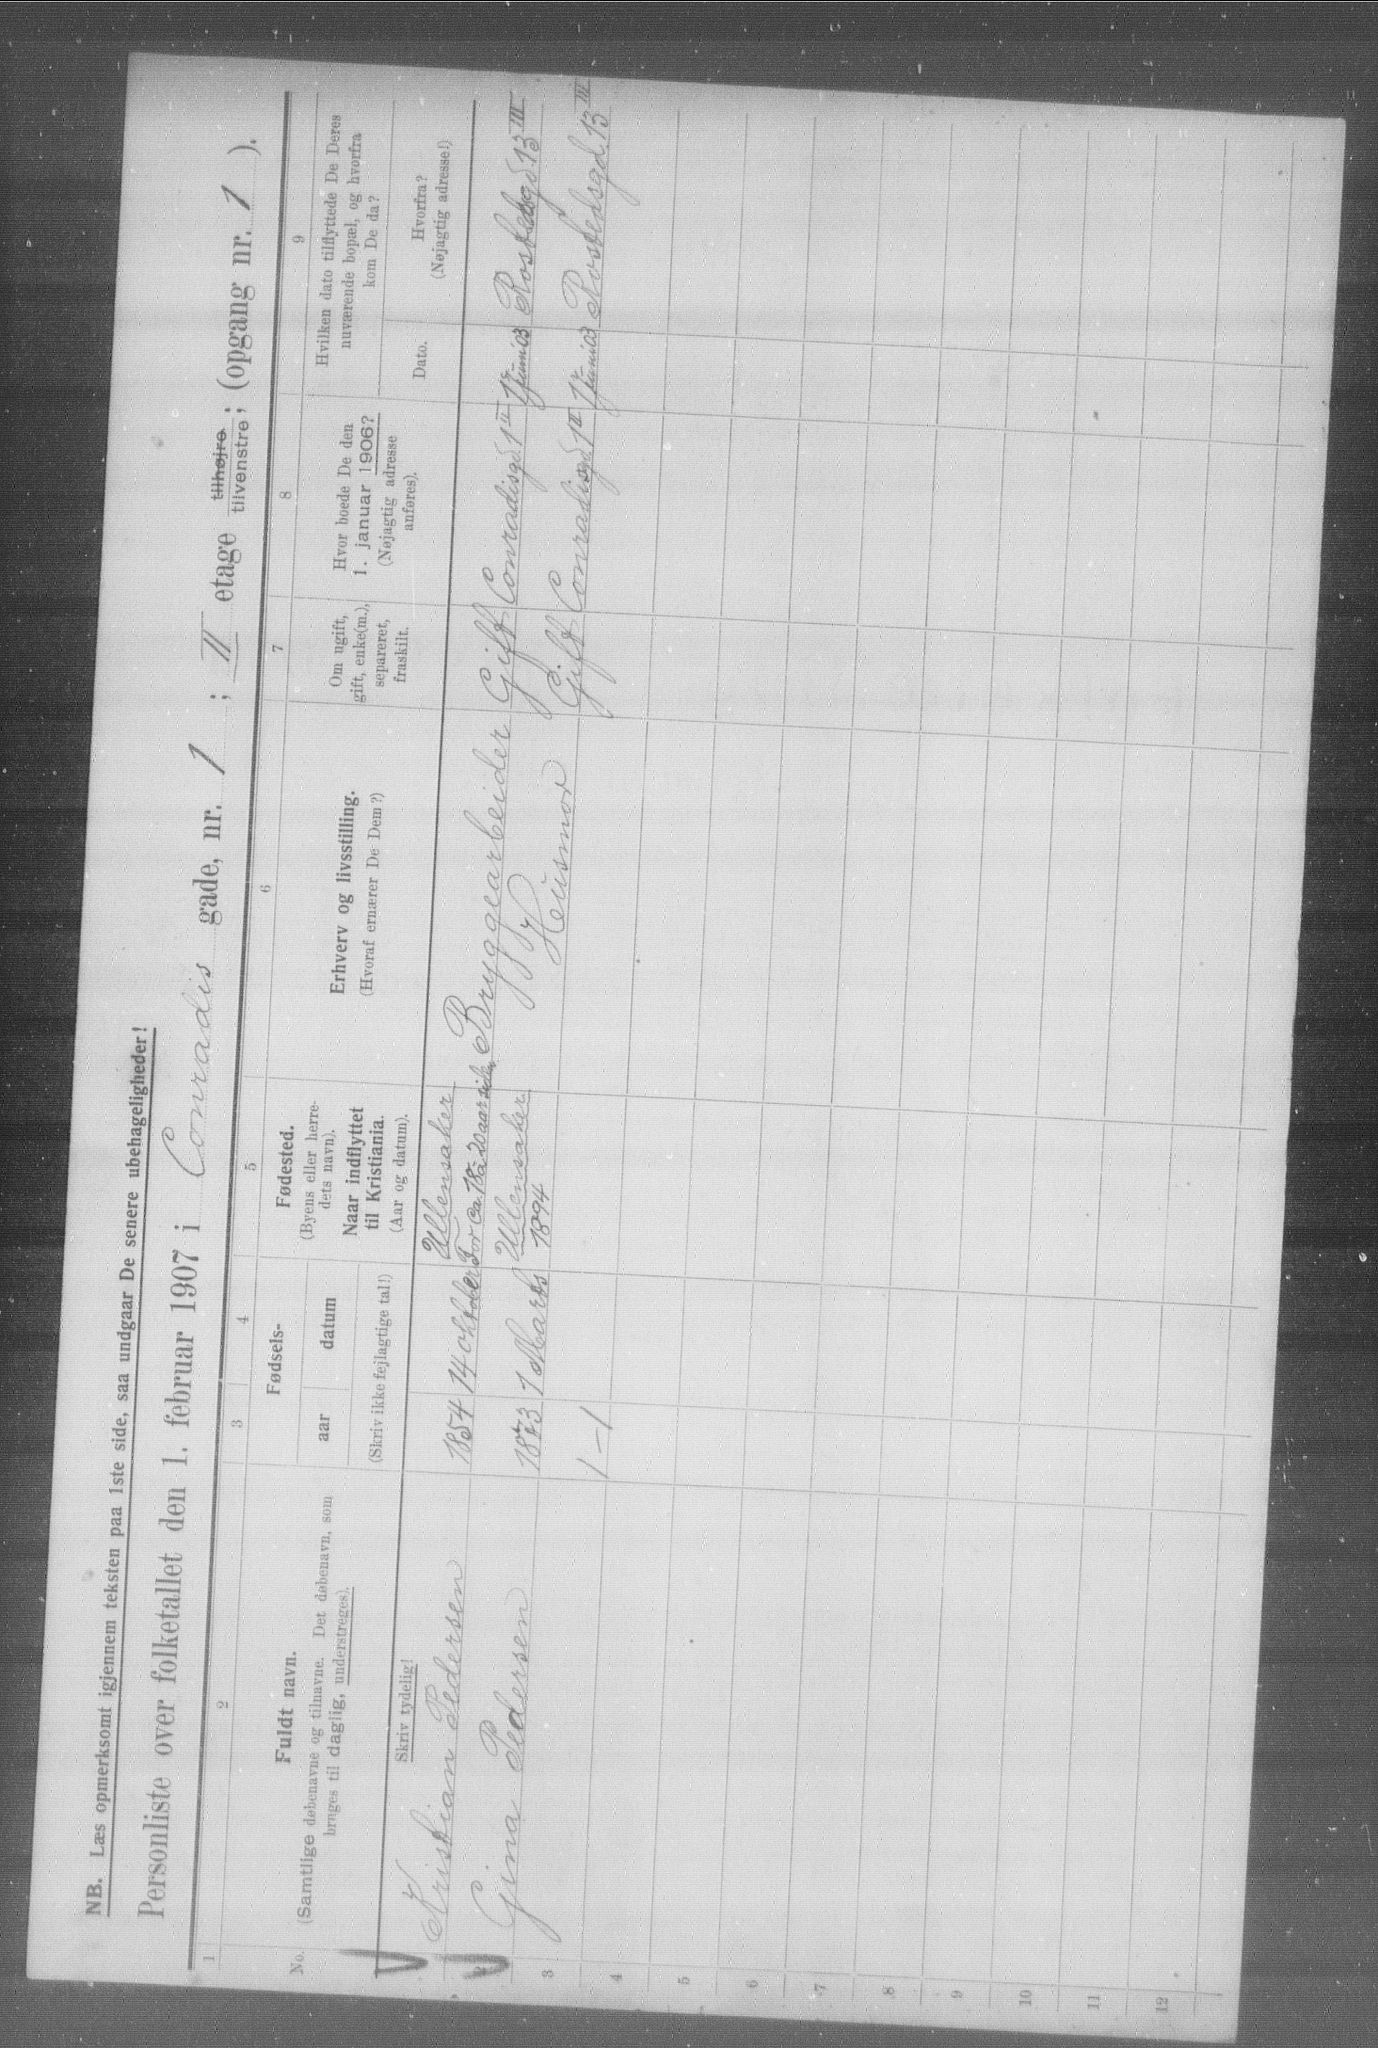 NB. Læs opmerksomt igjennem teksten paa 1ste side, saa undgaar De senere ubehageligheder!
Personliste over folketallet den 1. februar 1907 i Conradis gade, nr. 1 ; II etage tilhøjre tilvenstre ; (opgang nr. 1 ).
1 2 3 4 5 6 7 8 9
No.
Fuldt navn.
(Samtlige døbenavne og tilnavne. Det døbenavn, som
bruges til daglig, understreges).
Skriv tydelig!
Fødsels-
aar datum
(Skriv ikke fejlagtige tal!)
Fødested.
(Byens eller herre-
dets navn).
Naar indflyttet
til Kristiania.
(Aar og datum).
Erhverv og livsstilling.
(Hvoraf ernærer De Dem?)
Om ugift,
gift, enke(m.),
separeret,
fraskilt.
Hvor boede De den
1. januar 1906?
(Nøjagtig adresse
anføres).
Hvilken dato tilflyttede De Deres
nuværende bopæl, og hvorfra
kom De da?
Dato.
Hvorfra?
(Nøjagtig adresse!)
Kristian Pedersen 1854 14 oktober Ullensaker For ca. 18 a 20 aar siden Bryggearbeider Gift Conradisgd. 1 II 1 Juni 03 Rostedsgd. 13 III
2 Gina Pedersen 1873 7 Marts Ullensaker 1894 Husmor Gift Conradisgd. 1 II 1 Juni 03 Rostedsgd. 13 III
3 1 – 1
4
5
6
7
8
9
10
11
12